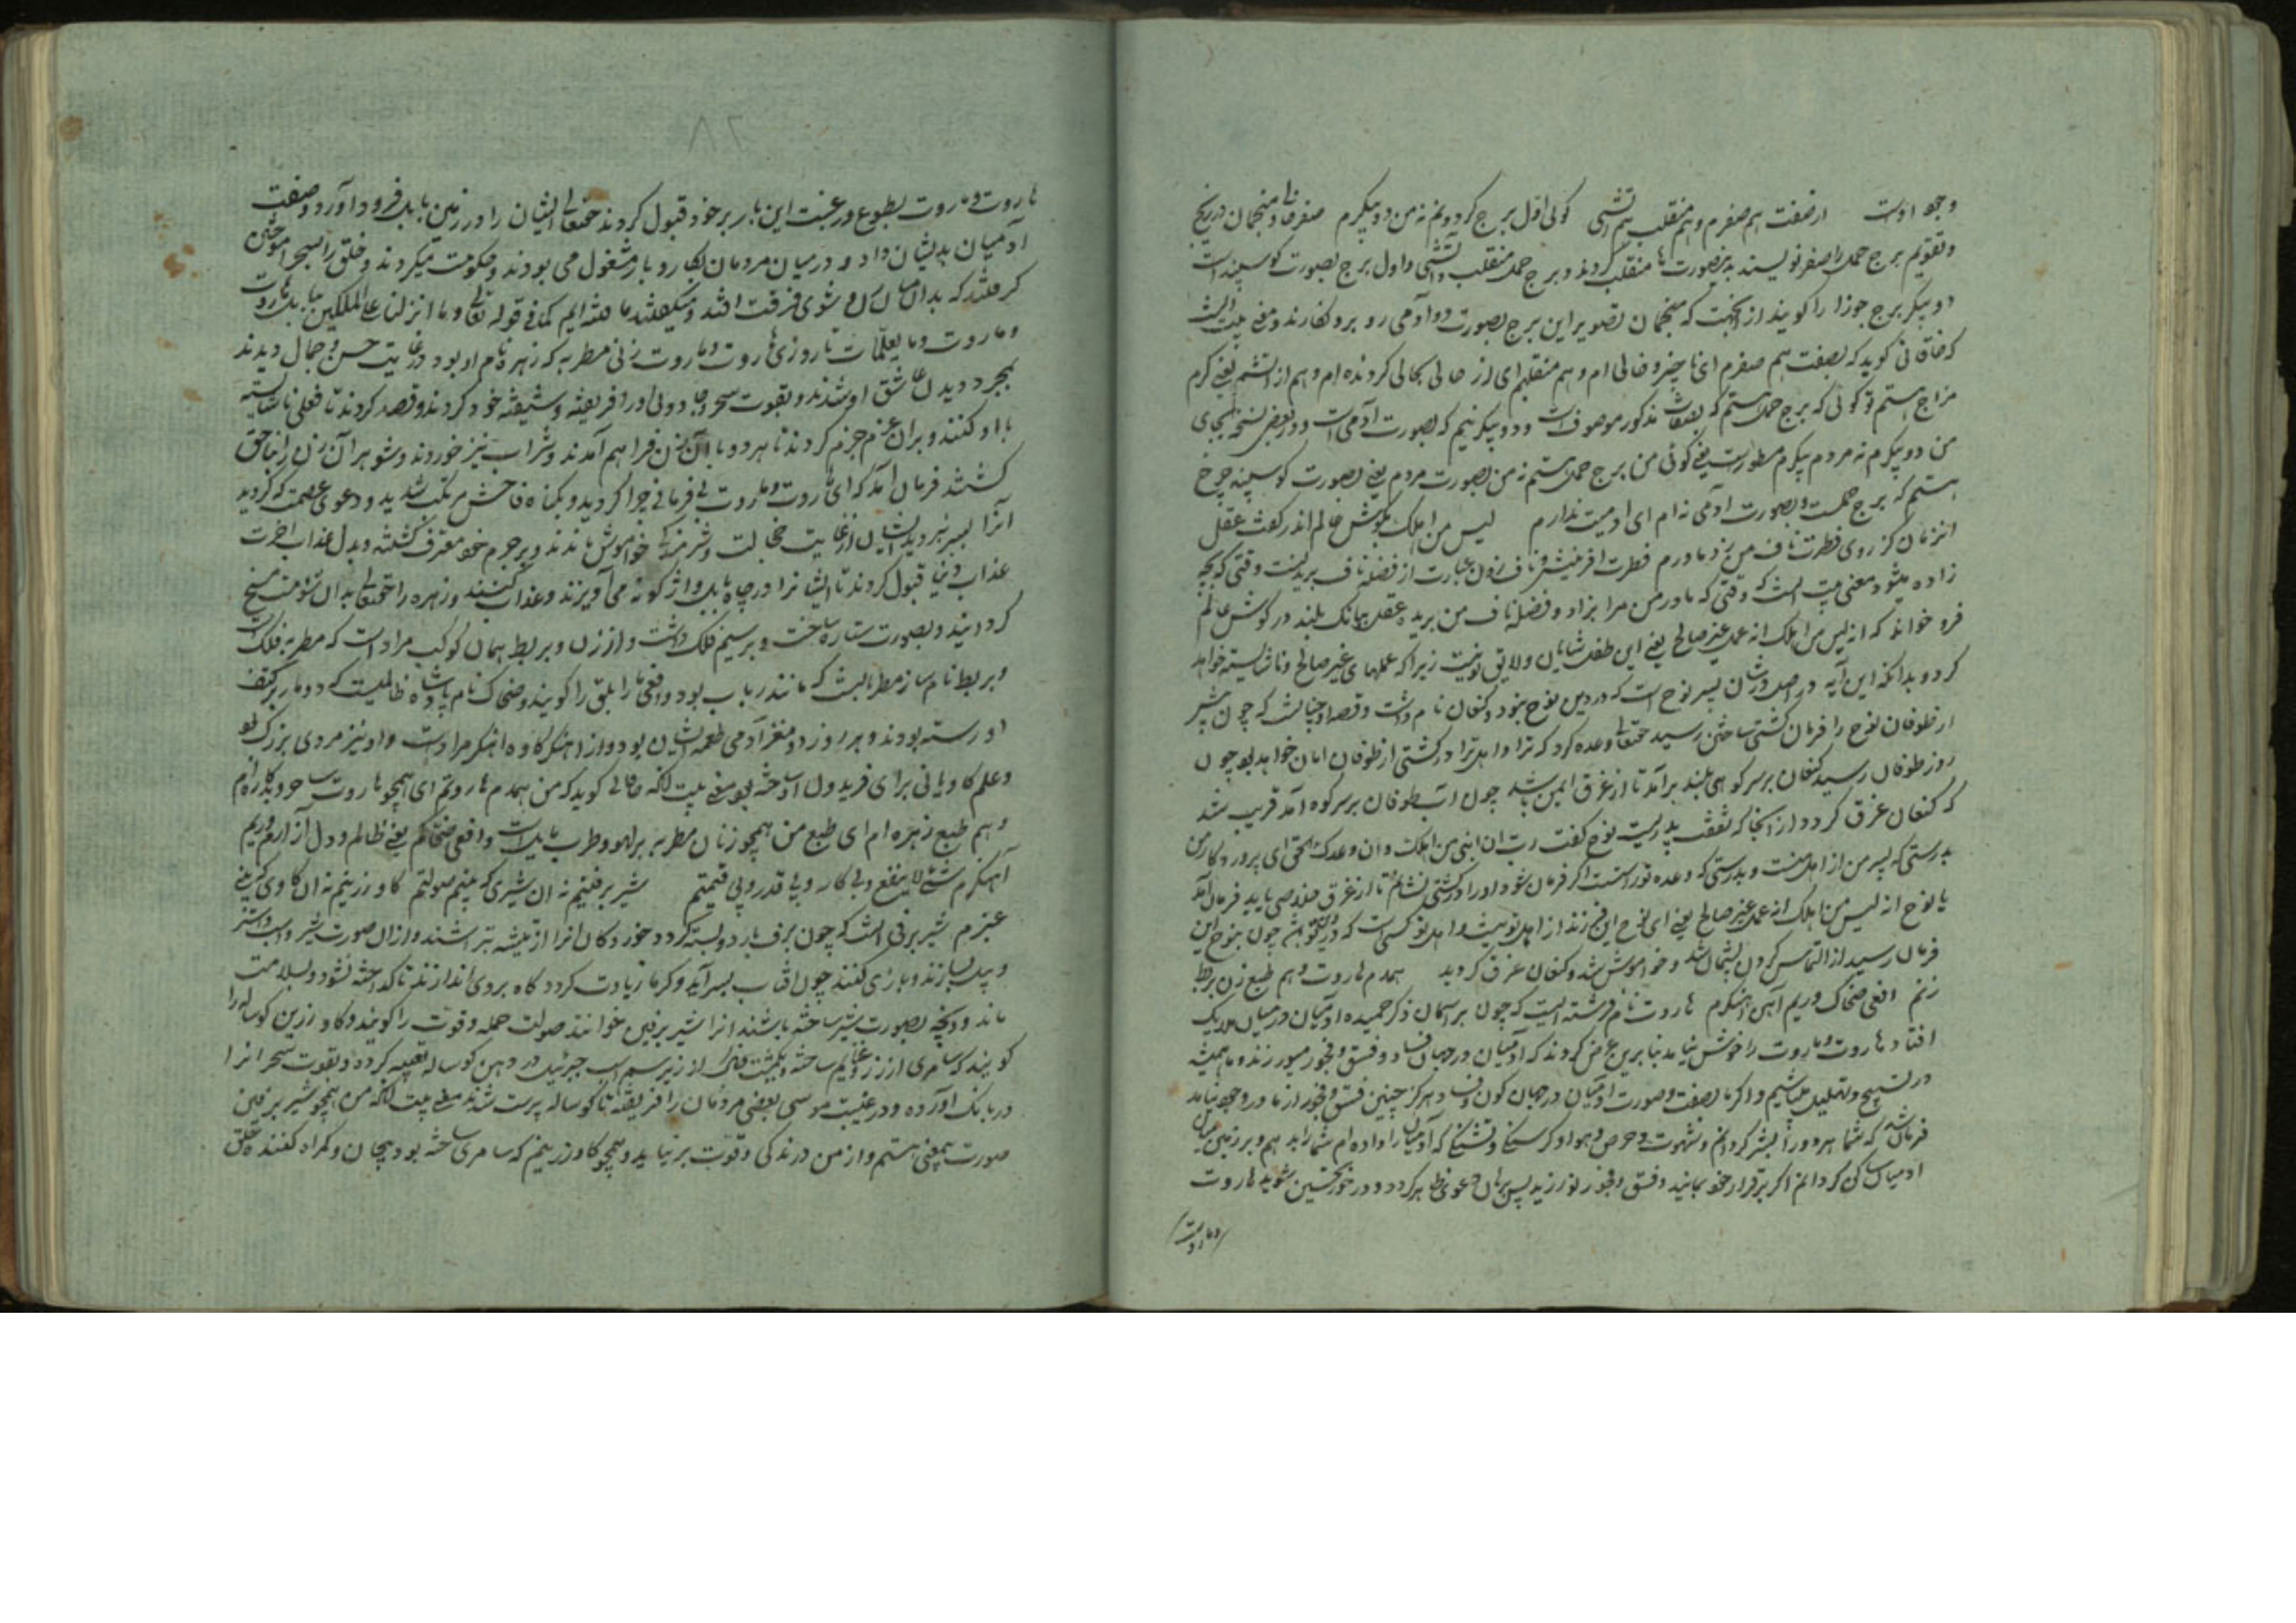 وجود اوست از صفت هم صفرم و هم منقلب هم آتشی گوئی اول برج گردونم نه من دو پیکرم صفر منجمان در زیج
و تقویم برج حمل را صفر نویسند بدینصورت منقلب گردند و برج حمل منقلب و آتشی و اول برج بصورت گوسپند است
دو پیکر برج جوزا را گویند از آنجهت که منجمان تصویر این برج بصورت دو آدمی رو برو نگارند و معنی بیت آنست
که خاقانی گوید که بصفت هم صفرم ای ناچیز و خالی ام و هم منقلبم ای از حالی بحالی گردنده ام و هم از آتشم یعنی گرم
مزاج هستم تو گوئی که برج حمل هستم که بصفات مذکور موصوف است و دو پیکر نیم که بصورت آدمی است و در بعض نسخ بجای
من دو پیکرم نه مردم پیکرم مسطورست یعنی گوئی من برج حمل هستم نه من بصورت مردم یعنی بصورت گوسپند چرخ
هستم که برج حملست و بصورت آدمی نه ام ای آدمیت ندارم لیس من اهلک بگوش عالم اندر گفت عقل
آنزمان کز روی فطرت ناف من زد مادرم فطرت آفرینش و ناف زدن عبارت از فضله ناف بریدنست وقتی که بچه
زاده میشود معنی بیت آنست که وقتی که مادر من مرا بزاد و فضله ناف من برید عقل ببانگ بلند در گوش عالم
فرو خواند که انه لیس من اهلک انه عمل غیر صالح یعنی این طفل شایان و لایق تو نیست زیرا که عملهای غیر صالح و ناشایسته خواهد
کرد و بدانکه این آیه در اصل در شان پسر نوح است که در دین نوح نبود و کنعان نام داشت و قصه او چنانست که چون پیشتر
از طوفان نوح را فرمان کشتی ساختن رسید حقتعالی وعده کرد که ترا و اهل ترا در کشتی از طوفان امان خواهد بود چون
روز طوفان رسید کنعان بر سر کوهی بلند برآمد تا از غرق ایمن باشد چون آب طوفان بر سر کوه آمد قریب شد
که کنعان غرق گردد از آنجا که شفقت پدریست نوح گفت رب ان ابنی من اهلک و ان وعدک الحق ای پروردگار من
بدرستی که پسر من از اهل منست و بدرستی که وعده تو راست است اگر فرمان شود او را در کشتی نشانم تا از غرق خلاصی یابد فرمان آمد
یا نوح انه لیس من اهلک انه عمل غیر صالح یعنی ای نوح این فرزند از اهل تو نیست و اهل تو کسی است که در دین تو باشد چون بنوح این
فرمان رسید از التماس کردن پشیمان شد و خاموش شد و کنعان غرق گردید همدم هاروت و هم طبع زن بربط
زنم افعی ضحاک و ریم آهن آهنگرم هاروت نام فرشته ایست که چون بر آسمان ذکر حمیده آدمیان در میان ملایک
افتاد هاروت و ماروت را خوش نیامد بنا برین عرض کردند که آدمیان در جهان فساد و فسق و فجور میورزند و ما همیشه
در تسبیح و تهلیل میباشیم و اگر ما بصفت و صورت آدمیان در جهان کون و فساد هرگز چنین فسق و فجور از ما در وجود نیاید
فرمان شد که شما هر دو را بشر گردانم و شهوت و حرص و هوا و گرسنگی و تشنگی که آدمیان را داده ام شما را بدهم و بر زمین میان
آدمیان ساکن گردانم اگر برقرار خود بمانید و فسق و فجور نورزید پس برهان دعوی ظاهر گردد و در خور تحسین شوید هاروت
و ماروت
هاروت و ماروت بطوع و رغبت این بار بر خود قبول کردند حقتعالی ایشان را در زمین بابل فرود آورد و صفت
آدمیان بدیشان داد و در میان مردمان بکار و بار مشغول می بودند و حکومت میکردند و خلق را سحر آموختن
گرفتند که بدان میان زن و شوی فرقت افتد و میگفتند ما فتنه ایم کما فی قوله تعالی و ما انزل علی الملکین ببابل هاروت
و ماروت و ما یعلمان تا روزی هاروت و ماروت زنی مطربه که زهره نام او بود در غایت حسن و جمال دیدند
بمجرد دیدن عاشق او شدند و بقوت سحر و جادوئی او را فریفته و شیفته خود کردند و قصد کردند تا فعلی ناشایسته
با او کنند و بران عزم جزم کردند تا هر دو با آن زن فراهم آمدند و شراب نیز خوردند و شوهر آن زن را بناحق
کشتند فرمان آمد که ای هاروت و ماروت بی فرمانی چرا کردید و بگناه فاحش مرتکب شدید و دعوی عصمت که کردید
آنرا بسر نبردید ایشان از غایت خجالت و شرمندگی خاموش ماندند و بر جرم خود معترف گشته و بدل عذاب آخرت
عذاب دنیا قبول کردند تا ایشانرا در چاه بابل واژگونه می آویزند و عذاب کنند و زهره را حقتعالی بدان شومت مسخ
گردانید و بصورت ستاره ساخت و بر سیم فلک داشت و از زن و بربط همان کوکب مراد است که مطربه فلک است
و بربط نام ساز مطربانست که مانند رباب بود و افعی مار ابلق را گویند و ضحاک نام پادشاه ظالمیست که دو مار بر کتف
او رسته بودند و هر روز دو مغز آدمی طعمه ایشان بود و از آهنگر کاوه آهنگر مراد است و او نیز مردی بزرگ بود
و علم کاویانی برای فریدون او ساخته بود معنی بیت آنکه خاقانی گوید که من همدم هاروتم ای همچو هاروت ساحر و بدکاره ام
و هم طبع زهره ام ای طبع من همچو زنان مطربه بر لهو و طرب مایل است و افعی ضحاکم یعنی ظالم و دل آزارم و ریم
آهنگرم شی لا ینفع و بی کار و بی قدر و بی قیمتم شیر برفینم نه آن شیری که بینم صولتم گاو زرینم نه آن گاوی که بینی
عنبرم شیر برفی آنست که چون برف بارد و بسته گردد خوردکان آنرا از تیشه بتراشند و ازان صورت شیر و اسپ و شتر
و پیل سازند و بازی کنند چون آفتاب بسر آید و گرما زیادت گردد کاه بر وی اندازند تا گداخته نشود و بسلامت
ماند و آنچه بصورت شیر ساخته باشند آنرا شیر برفین خوانند صولت حمله و قوت را گویند و گاو زرین گوساله را
گویند که سامری از زر و سیم ساخته و یکمشت خاک از زیر سم اسپ جبرئیل در دهن گوساله تعبیه کرده و بقوت سحر آنرا
در بانگ آورده و در غیبت موسی بعضی مردمان را فریفته تا گوساله پرست شدند معنی بیت آنکه من همچو شیر برفین
صورت بیمعنی هستم و از من درندگی و قوت بر نیاید و همچو گاو زرینم که سامری ساخته بود بیجان و گمراه کننده خلق